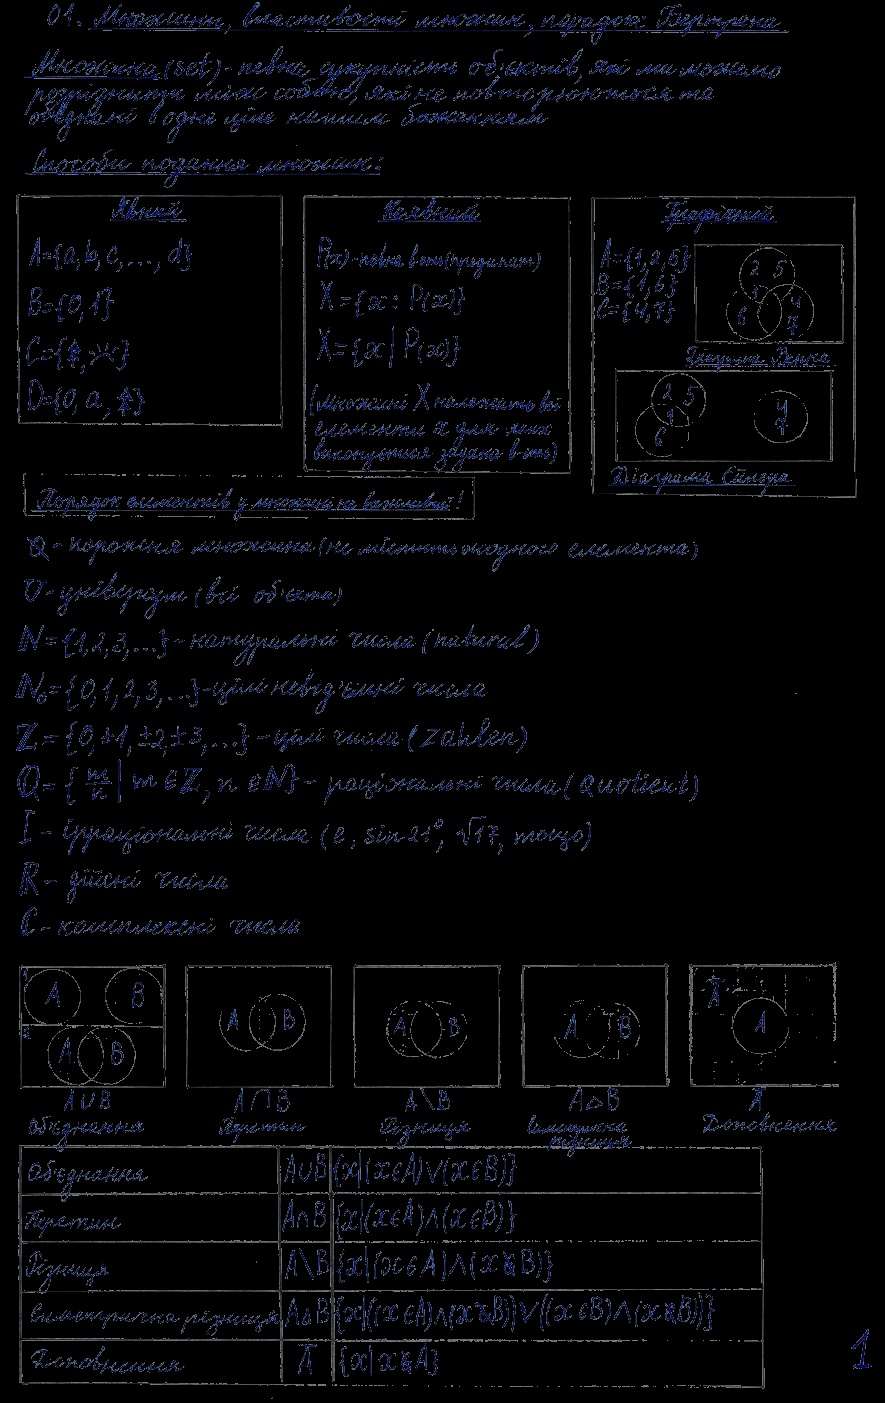 01. Множини, властивості множин, парадокс Бертрана
Множина (set) - певна сукупність об'єктів, які ми можемо
розрізнити між собою, які не повторюються та
об'єднані в одне ціле нашим бажанням
Способи подання множин:
Явний
A={a, b, c, ..., d}
B={0, 1}
C={
D={0, a,
Неявний
P(x) - певна в-сть (предикат)
X={x: P(x)}
X={x| P(x)}
(множині X належать всі
елементи x для яких
виконується задана в-сть)
Графічний
A={1,2,5}
B={1,6}
C={4,7}
2 5
1
6
4
7
Діаграма Венна
2 5
1
6
4
7
Діаграма Ейлера
Порядок елементів у множині не важливий!
∅ - порожня множина (не містить жодного елемента)
U - універсум (всі об'єкти)
ℕ={1,2,3,...} - натуральні числа (natural)
ℕ₀={0,1,2,3,...} - цілі невід'ємні числа
ℤ={0,±1,±2,±3,...} - цілі числа (Zahlen)
ℚ={m/n | m∈ℤ, n∈ℕ} - раціональні числа (Quotient)
I - ірраціональні числа (e, sin 21°, √17, тощо)
ℝ - дійсні числа
ℂ - комплексні числа
1
A B
2
A B
A∪B
Об'єднання
A B
A∩B
Перетин
A B
A\B
Різниця
A B
A△B
Симетрична
різниця
A̅
A
A̅
Доповнення
Об'єднання A∪B {x|(x∈A)∨(x∈B)}
Перетин A∩B {x|(x∈A)∧(x∈B)}
Різниця A\B {x|(x∈A)∧(x∉B)}
Симетрична різниця A△B {x|((x∈A)∧(x∉B))∨((x∈B)∧(x∉A))}
Доповнення A̅ {x|x∉A}
1